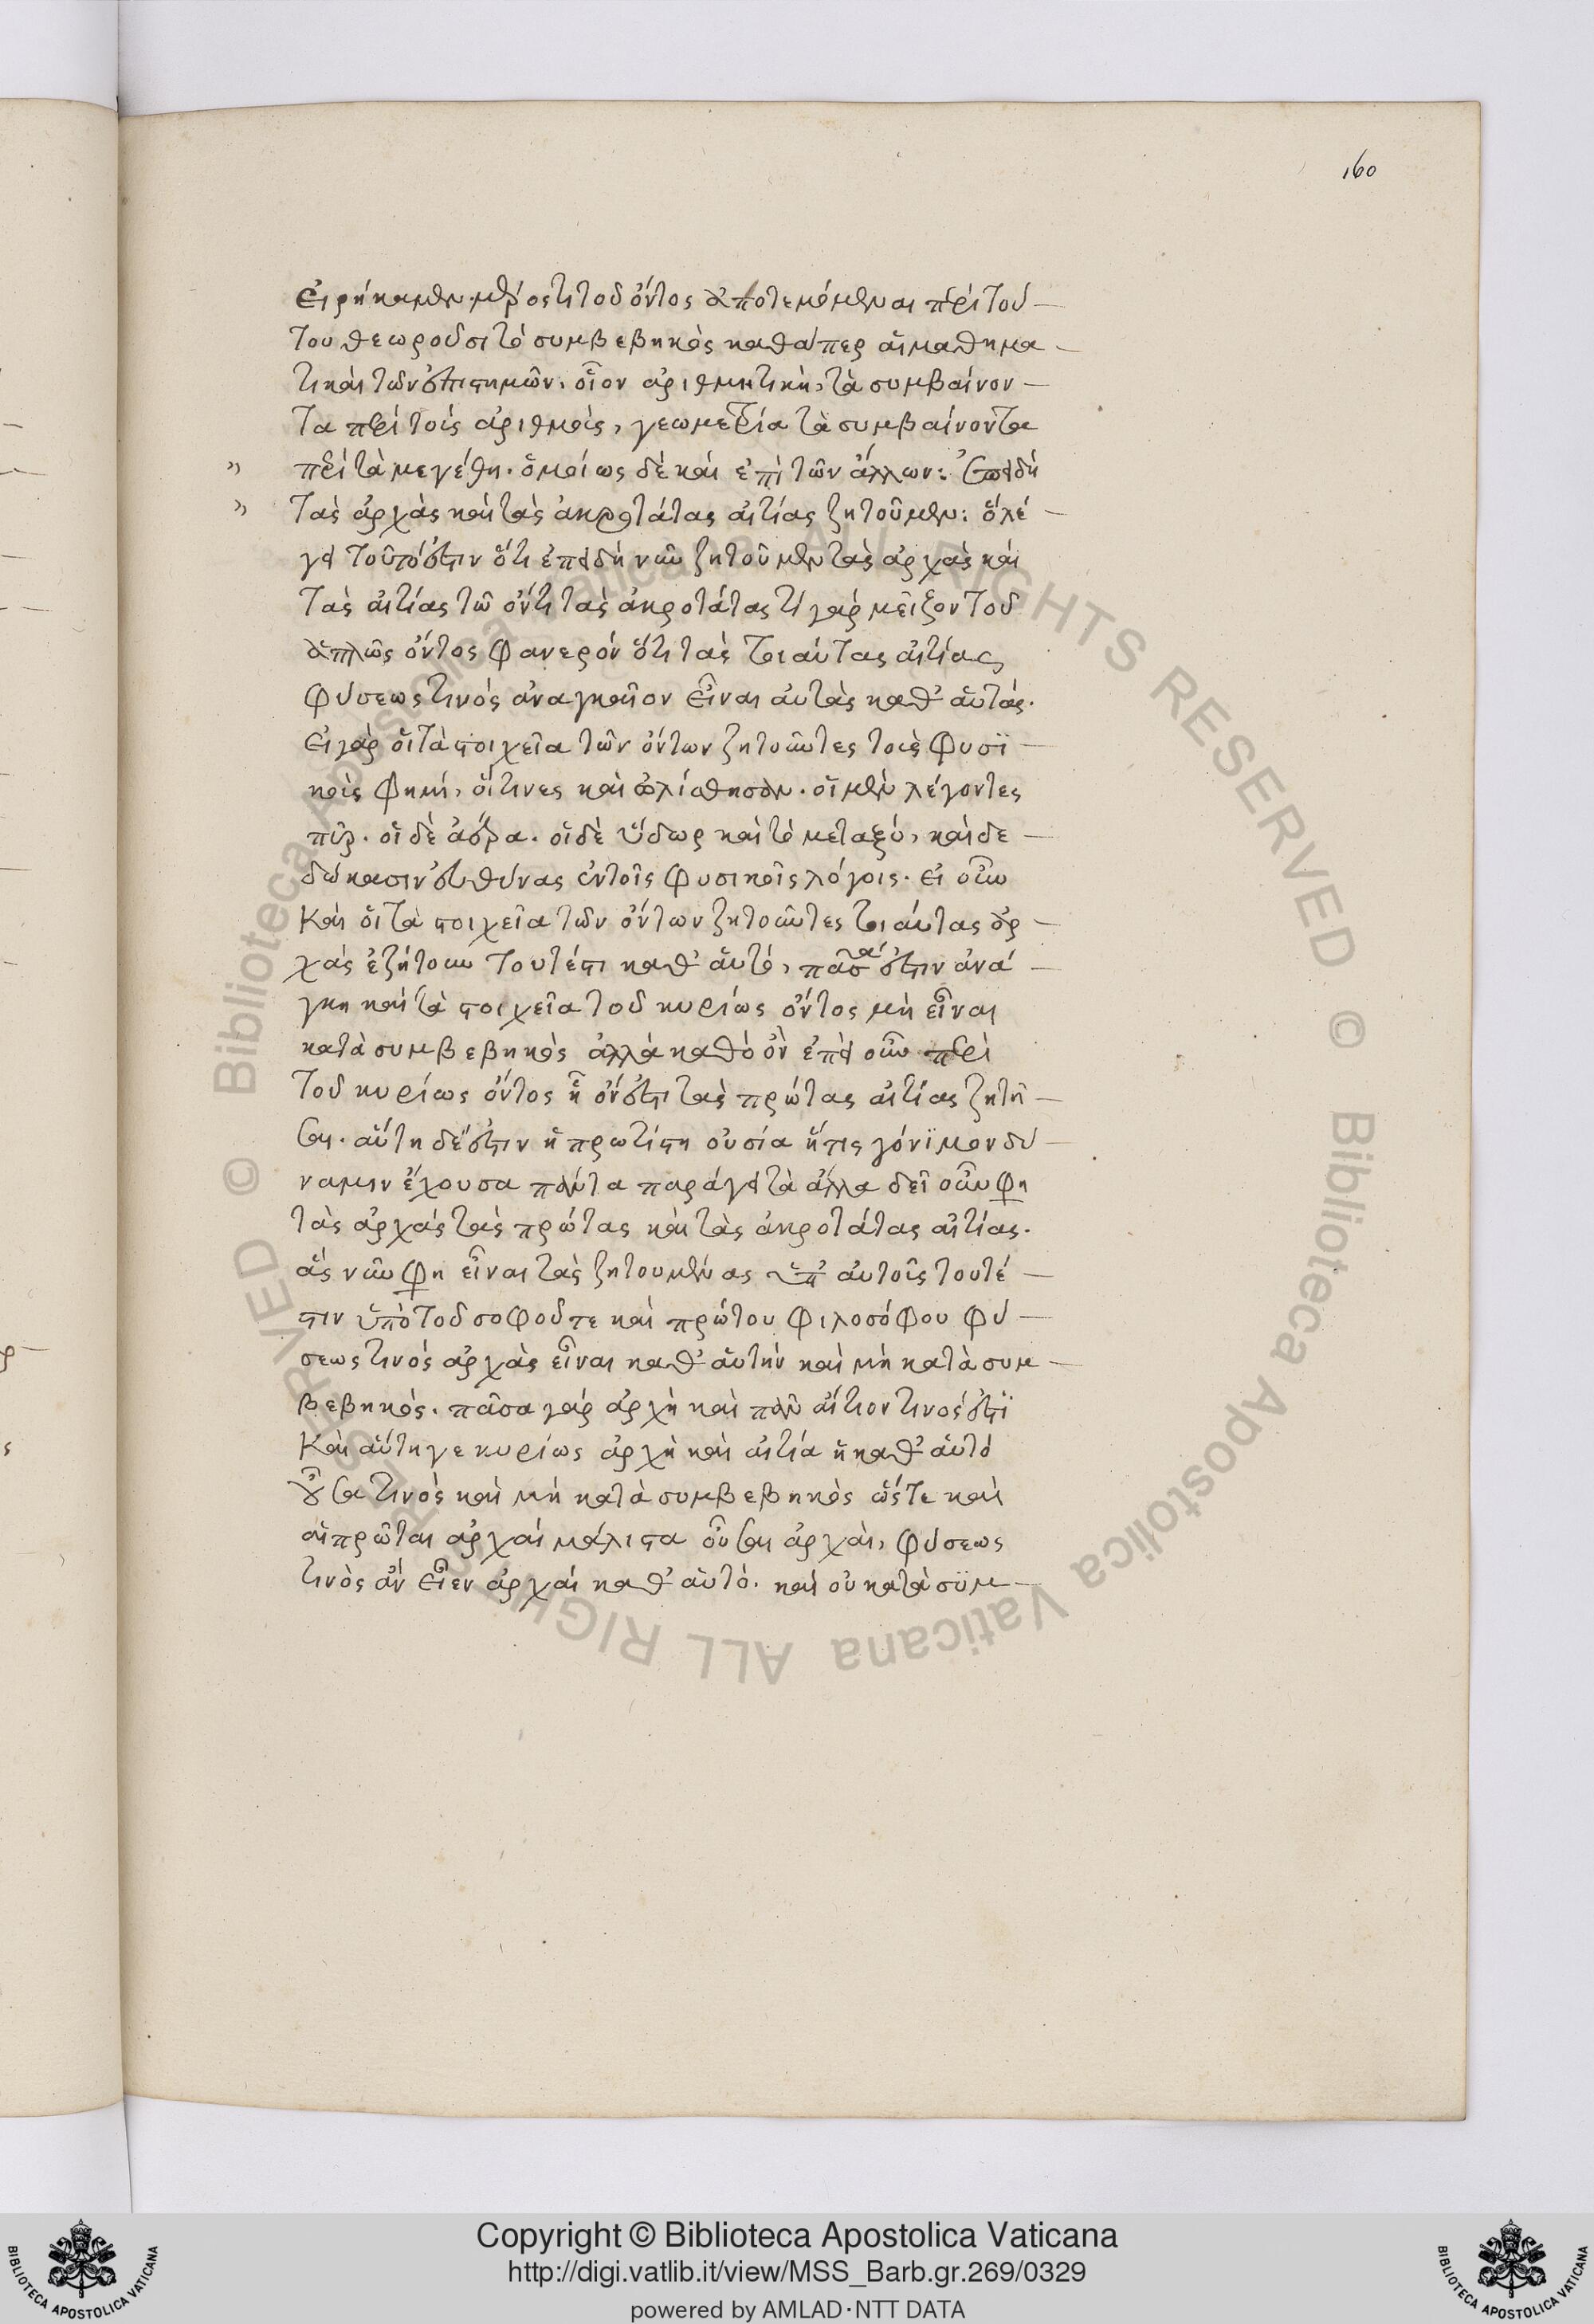 160
εἰρήκαμεν. μέρος τι τοῦ ὄντος ἀποτεμόμεναι περὶ τού-
του θεωροῦσι τὸ συμβεβηκὸς καθάπερ αἱ μαθημα-
τικαὶ τῶν ἐπιστημῶν. οἷον ἀριθμητικὴ, τὰ συμβαίνον-
τα περὶ τοῖς ἀριθμοῖς, γεωμετρία τὰ συμβαίνοντα
" περὶ τὰ μεγέθη. ὁμοίως δὲ καὶ ἐπὶ τῶν ἄλλων: Ἐπειδὴ
" τὰς ἀρχὰς καὶ τὰς ἀκροτάτας αἰτίας ζητοῦμεν: ὃ λέ-
γει τοῦτό ἐστιν ὅτι ἐπειδὴ νῦν ζητοῦμεν τὰς ἀρχὰς καὶ
τὰς αἰτίας τῶ ὄντι τὰς ἀκροτάτας τί γὰρ μεῖζον τοῦ
ἁπλῶς ὄντος φανερὸν ὅτι τὰς τοιαύτας αἰτίας
φύσεως τινὸς ἀναγκαῖον εἶναι αὐτὰς καθ' αὑτάς.
εἰ γὰρ οἱ τὰ στοιχεῖα τῶν ὄντων ζητοῦντες τοὶς φυσϊ-
κοὶς φημὶ, οἵτινες καὶ ὠλίσθησαν. οἱ μὲν λέγοντες
πῦρ. οἱ δὲ ἀέρα. οἱ δὲ ὕδωρ καὶ τὸ μεταξύ, καὶ δε-
δώκασιν εὐθύνας ἐν τοῖς φυσικοῖς λόγοις. εἰ οὖν
καὶ οἱ τὰ στοιχεῖα τῶν ὄντων ζητοῦντες τοιαύτας ἀρ-
χὰς ἐζήτουν τουτέστι καθ' αὑτό, πᾶσά ἐστιν ἀνά-
γκη καὶ τὰ στοιχεῖα τοῦ κυρίως ὄντος μὴ εἶναι
κατὰ συμβεβηκὸς ἀλλὰ καθὸ ὂν ἐπεὶ οὖν περὶ
τοῦ κυρίως ὄντος ἧ ὄν ἐστι τὰς πρώτας αἰτίας ζητεῖ-
ται. αὕτη δέ ἐστιν ἡ πρωτίστη οὐσία ἥτις γόνϊμον δύ-
ναμιν ἔχουσα πάντα παράγει τὰ ἄλλα δεῖ οὖν φη
τὰς ἀρχὰς τὰς πρώτας καὶ τὰς ἀκροτάτας αἰτίας.
ἃς νῦν φη εἶναι τὰς ζητουμένας ὑπ' αὐτοῖς τουτέ-
στιν ὑπὸ τοῦ σοφοῦ τε καὶ πρώτου φιλοσόφου φύ-
σεως τινὸς ἀρχὰς εἶναι καθ' αὑτὴν καὶ μὴ κατὰ συμ-
βεβηκός. πᾶσα γὰρ ἀρχὴ καὶ πᾶν αἴτιον τινός ἐστϊ
καὶ αὕτη γε κυρίως ἀρχὴ καὶ αἰτία ἡ καθ' αὑτό
οὖσα τινὸς καὶ μὴ κατὰ συμβεβηκὸς ὥστε καὶ
αἱ πρῶται ἀρχαὶ μάλιστα οὖσαι ἀρχαὶ, φύσεως
τινὸς ἂν εἶεν ἀρχαὶ καθ' αὑτό. καὶ οὐ κατὰ σϋμ-
Copyright © Biblioteca Apostolica Vaticana
http://digi.vatlib.it/view/MSS_Barb.gr.269/0329
powered by AMLAD·NTT DATA
BIBLIOTECA APOSTOLICA VATICANA
BIBLIOTECA APOSTOLICA VATICANA
© Biblioteca Apostolica Vaticana ALL RIGHTS RESERVED © Biblioteca Apostolica Vaticana ALL RIGHTS RESERVED